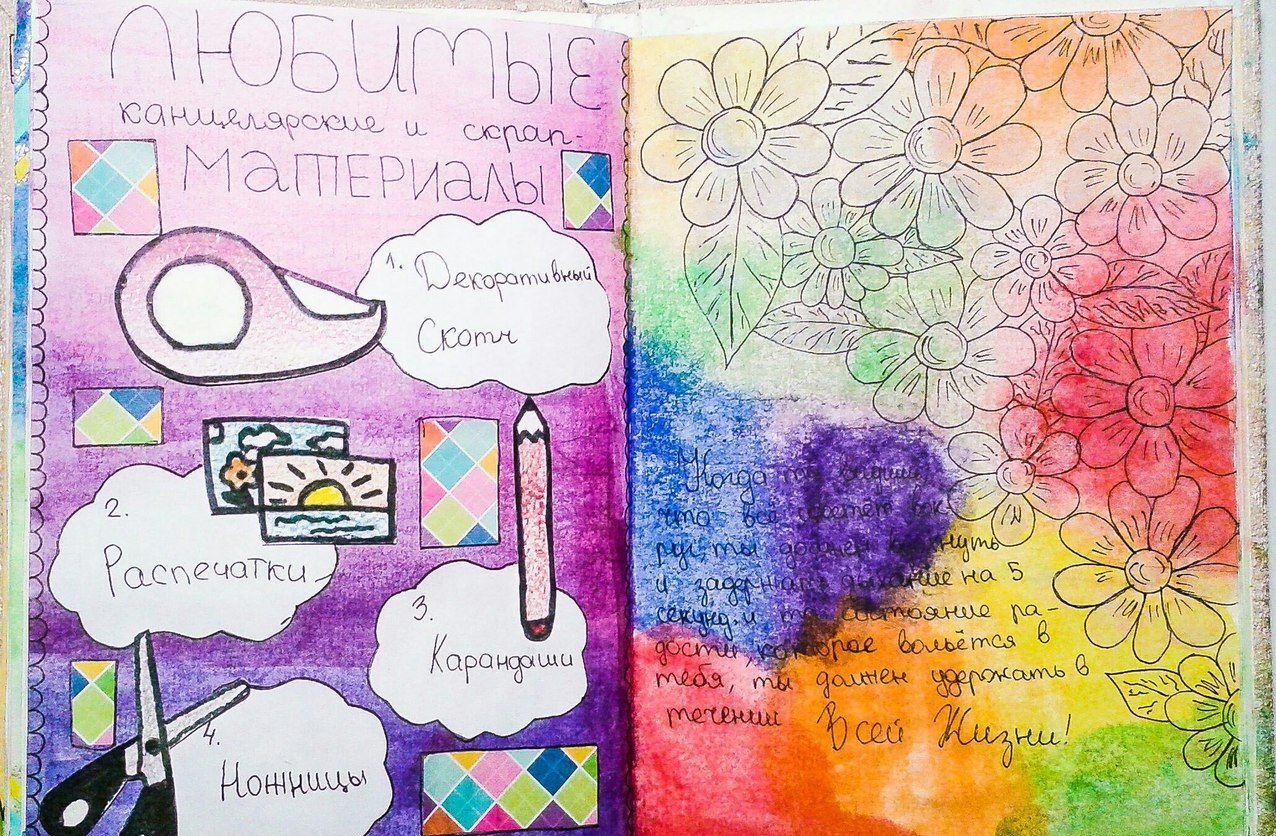 ЛЮБИМЫЕ
канцелярские и скрап-
МАТЕРИАЛЫ
1. Декоративный
Скотч
2.
Распечатки
3.
Карандаши
4.
Ножницы
Когда ты видишь,
что всё цветёт вок
руг, ты должен вдохнуть
и задержать дыхание на 5
секунд. и то состояние ра-
дости, которое вольётся в
тебя, ты должен удержать в
течении Всей Жизни!